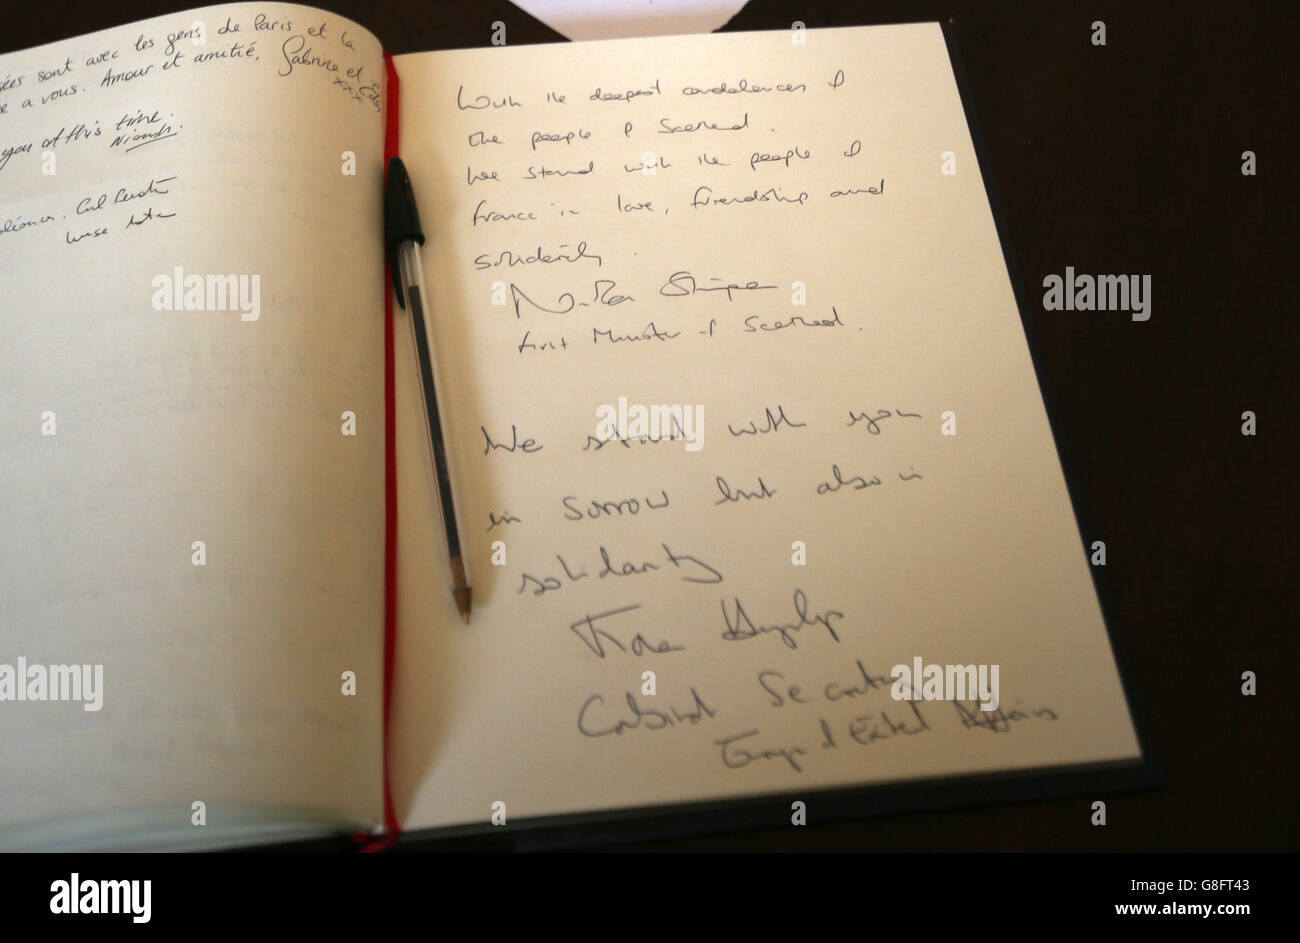 ées sont avec les gens de Paris et la
e a vous. Amour et amitié, Sabrina et
xxx
you at this time.
Niamh.
With the deepest condolences of
the people of Scotland.
We stand with the people of
France in love, friendship and
solidarity.
Nicola Sturgeon
First Minister of Scotland.
We stand with you
in sorrow but also in
solidarity
Fiona Hyslop
Cabinet Secretary
Europe & External Affairs
alamy
a
alamy
Image ID: G8FT43
www.alamy.com